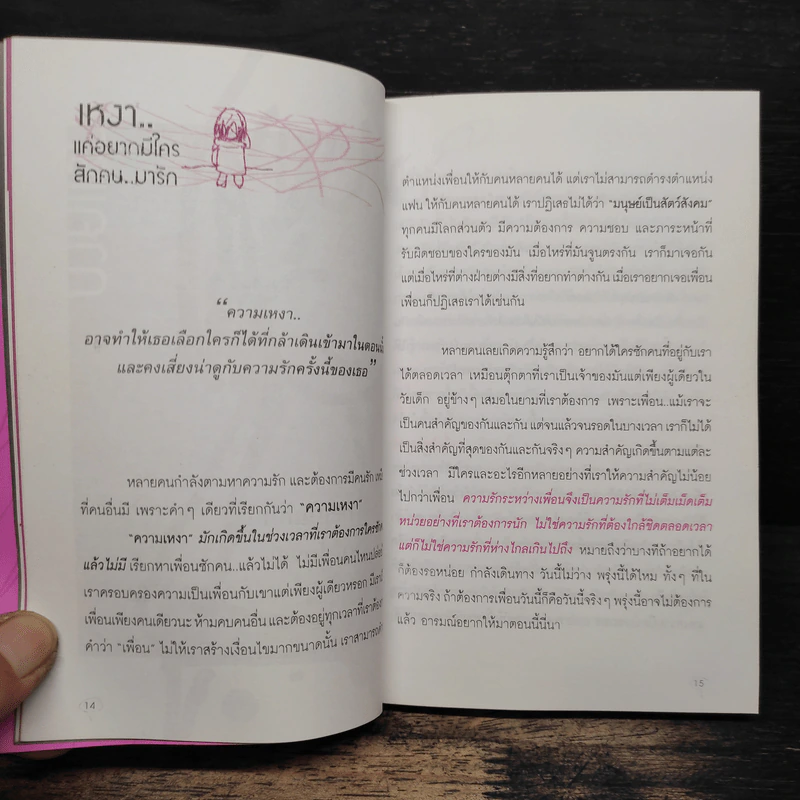 เหงา..
แค่อยากมีใคร
สักคน..มารัก
“ความเหงา..
อาจทำให้เธอเลือกใครก็ได้ที่กล้าเดินเข้ามาในตอนนี้
และคงเสี่ยงน่าดูกับความรักครั้งนี้ของเธอ”
หลายคนกำลังตามหาความรัก และต้องการมีคนรัก
ที่คนอื่นมี เพราะคำๆ เดียวที่เรียกกันว่า “ความเหงา”
“ความเหงา” มักเกิดขึ้นในช่วงเวลาที่เราต้องการใครซัก
แล้วไม่มี เรียกหาเพื่อนซักคน..แล้วไม่ได้ ไม่มีเพื่อนคนไหนปล่อย
เราครอบครองความเป็นเพื่อนกับเขาแต่เพียงผู้เดียวหรอก มีเรา
เพื่อนเพียงคนเดียวนะ ห้ามคบคนอื่น และต้องอยู่ทุกเวลาที่เราต้อง
คำว่า “เพื่อน” ไม่ให้เราสร้างเงื่อนไขมากขนาดนั้น เราสามารถดำ
14
ตำแหน่งเพื่อนให้กับคนหลายคนได้ แต่เราไม่สามารถดำรงตำแหน่ง
แฟน ให้กับคนหลายคนได้ เราปฏิเสธไม่ได้ว่า “มนุษย์เป็นสัตว์สังคม”
ทุกคนมีโลกส่วนตัว มีความต้องการ ความชอบ และภาระหน้าที่
รับผิดชอบของใครของมัน เมื่อไหร่ที่มันจูนตรงกัน เราก็มาเจอกัน
แต่เมื่อไหร่ที่ต่างฝ่ายต่างมีสิ่งที่อยากทำต่างกัน เมื่อเราอยากเจอเพื่อน
เพื่อนก็ปฏิเสธเราได้เช่นกัน
หลายคนเลยเกิดความรู้สึกว่า อยากได้ใครซักคนที่อยู่กับเรา
ได้ตลอดเวลา เหมือนตุ๊กตาที่เราเป็นเจ้าของมันแต่เพียงผู้เดียวใน
วัยเด็ก อยู่ข้างๆ เสมอในยามที่เราต้องการ เพราะเพื่อน..แม้เราจะ
เป็นคนสำคัญของกันและกัน แต่จนแล้วจนรอดในบางเวลา เราก็ไม่ได้
เป็นสิ่งสำคัญที่สุดของกันและกันจริงๆ ความสำคัญเกิดขึ้นตามแต่ละ
ช่วงเวลา มีใครและอะไรอีกหลายอย่างที่เราให้ความสำคัญไม่น้อย
ไปกว่าเพื่อน ความรักระหว่างเพื่อนจึงเป็นความรักที่ไม่เต็มเม็ดเต็ม
หน่วยอย่างที่เราต้องการนัก ไม่ใช่ความรักที่ต้องใกล้ชิดตลอดเวลา
แต่ก็ไม่ใช่ความรักที่ห่างไกลเกินไปถึง หมายถึงว่าบางทีถ้าอยากได้
ก็ต้องรอหน่อย กำลังเดินทาง วันนี้ไม่ว่าง พรุ่งนี้ได้ไหม ทั้งๆ ที่ใน
ความจริง ถ้าต้องการเพื่อนวันนี้ก็คือวันนี้จริงๆ พรุ่งนี้อาจไม่ต้องการ
แล้ว อารมณ์อยากให้มาตอนนี้นี่นา
15